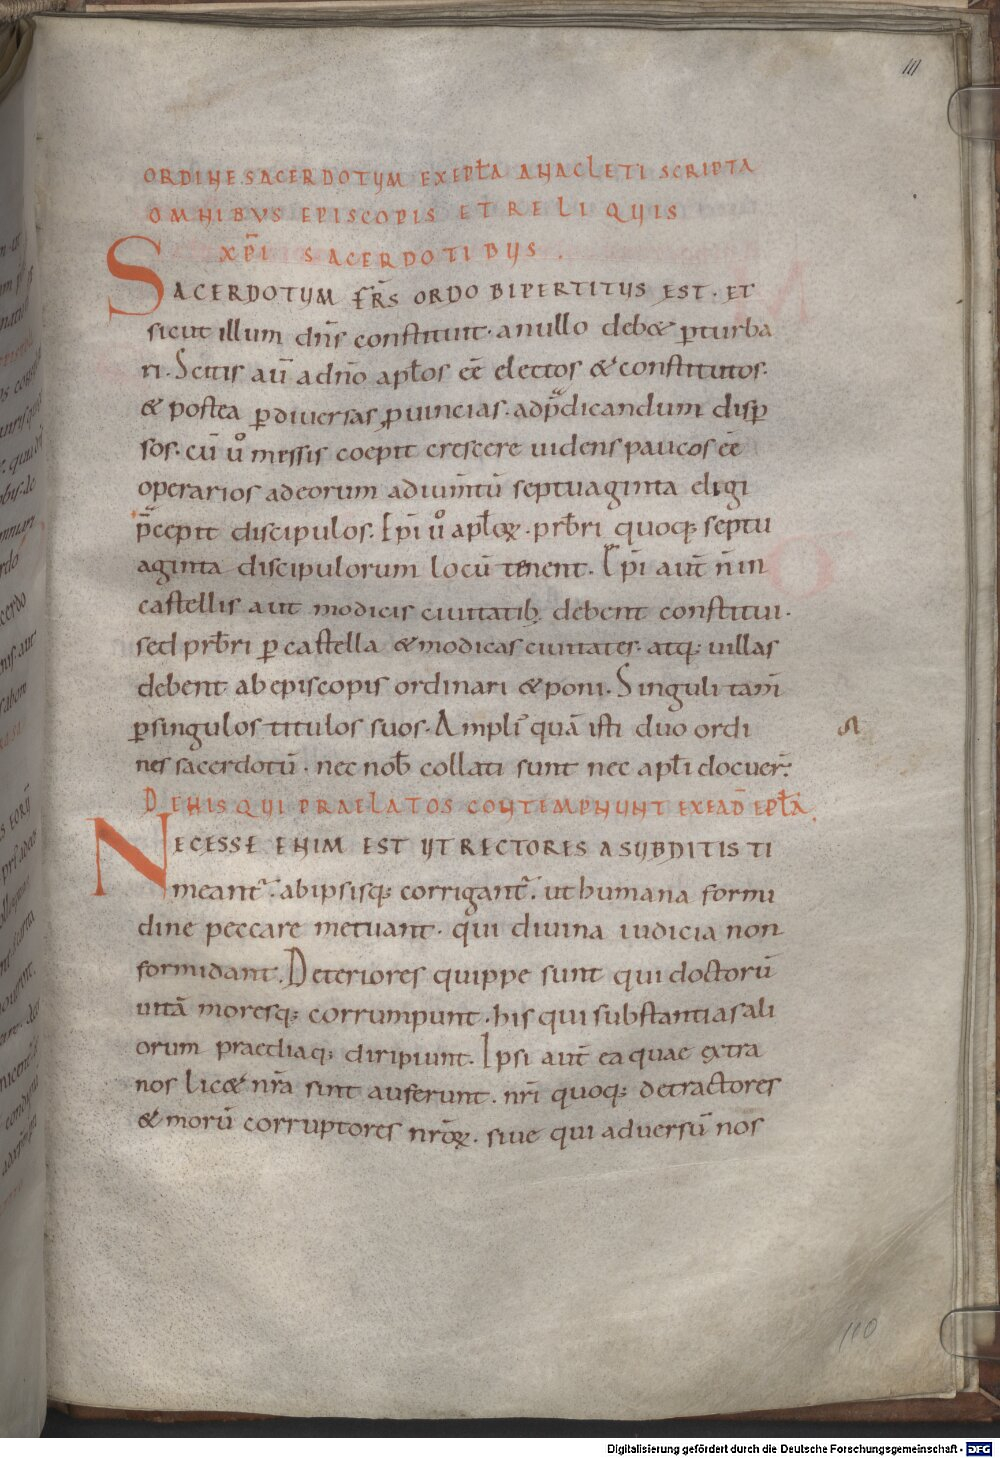 111
ORDINE SACERDOTUM EX EPLA ANACLETI SCRIPTA
OMNIBVS EPISCOPIS ET RELIQUIS
XPI SACERDOTIBUS.
SACERDOTUM FRS ORDO BIPERTITUS EST. ET
sicut illum dns constituit. a nullo debet pturba
ri. Scitis au a dno aplos ee electos & constitutos.
& postea p diuersas puincias. ad pdicandum disp
sos. cu uo messis coepit crescere uidens paucos ee
operarios ad eorum adiumtu septuaginta eligi
pcepit discipulos. Epi uo aploꝝ. prbri quoq; septu
aginta discipulorum locu tenent. Epi aut n in
castellis aut modicis ciuitatib; debent constitui.
sed prbri p castella & modicas ciuitates. atq; uillas
debent ab episcopis ordinari & poni. Singuli tam
p singulos titulos suos. Ampli' qua isti duo ordi
nes sacerdotu. nec nob collati sunt nec apli docuer.
DE HIS QUI PRAELATOS CONTEMPNUNT EX EAD EPLA.
NECESSE ENIM EST UT RECTORES A SUBDITIS TI
meant'. ab ipsisq; corrigant'. ut humana formi
dine peccare metuant. qui diuina iudicia non
formidant. Deteriores quippe sunt qui doctoru
uita moresq; corrumpunt. his qui substantias ali
orum praediaq; diripiunt. Ipsi aut ea quae extra
nos lic& nra sint auferunt. nri quoq; detractores
& moru corruptores nroꝝ. siue qui aduersu nos
110
Digitalisierung gefördert durch die Deutsche Forschungsgemeinschaft - DFG